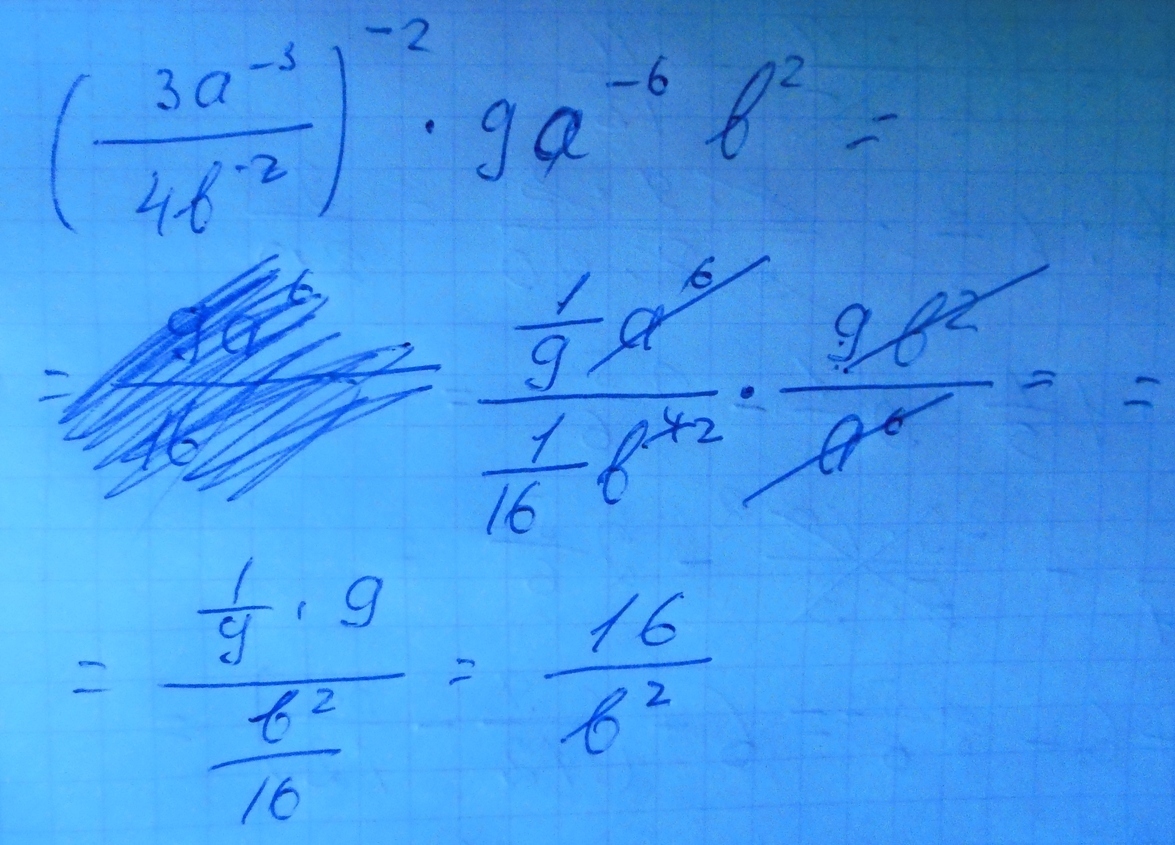 (3a⁻³ / 4b⁻²)⁻² · 9a⁻⁶ b² =
= (1/9 a⁶) / (1/16 b⁴ ²) · 9b² / a⁶ = =
= (1/9 · 9) / (b²/16) = 16 / b²